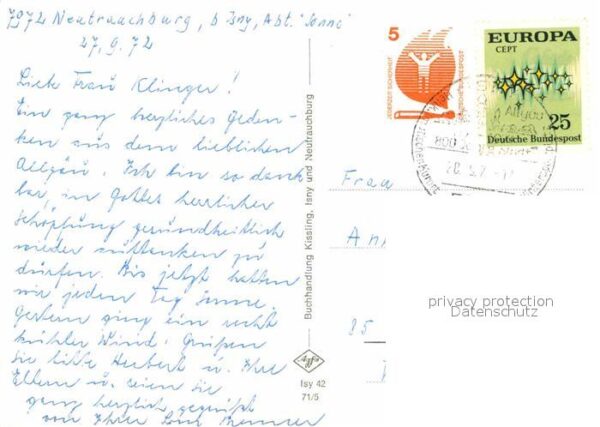 7972 Neutrauchburg, b Isny, Abt. "Sonne"
27.9.72
Liebe Frau Klinger!
Ein ganz herzliches Geden-
ken aus dem lieblichen
Allgäu. Ich bin so dank-
bar, in Gottes herrlicher
Schöpfung gesundheitlich
wieder auftanken zu
dürfen. Bis jetzt hatten
wir jeden Tag
Gestern ging ein recht
kühler Wind. Grüßen
Sie bitte Herbert u. Ihre
Eltern u. seien Sie
ganz herzlich gegrüßt
von Ihrer
Buchhandlung Kissling, Isny und Neutrauchburg
Agfa
Isy 42
71/5
5
JEDERZEIT SICHERHEIT
DEUTSCHE BUNDESPOST
EUROPA
CEPT
25
Deutsche Bundespost
Allgäu
Frau
An
85
privacy protection
Datenschutz